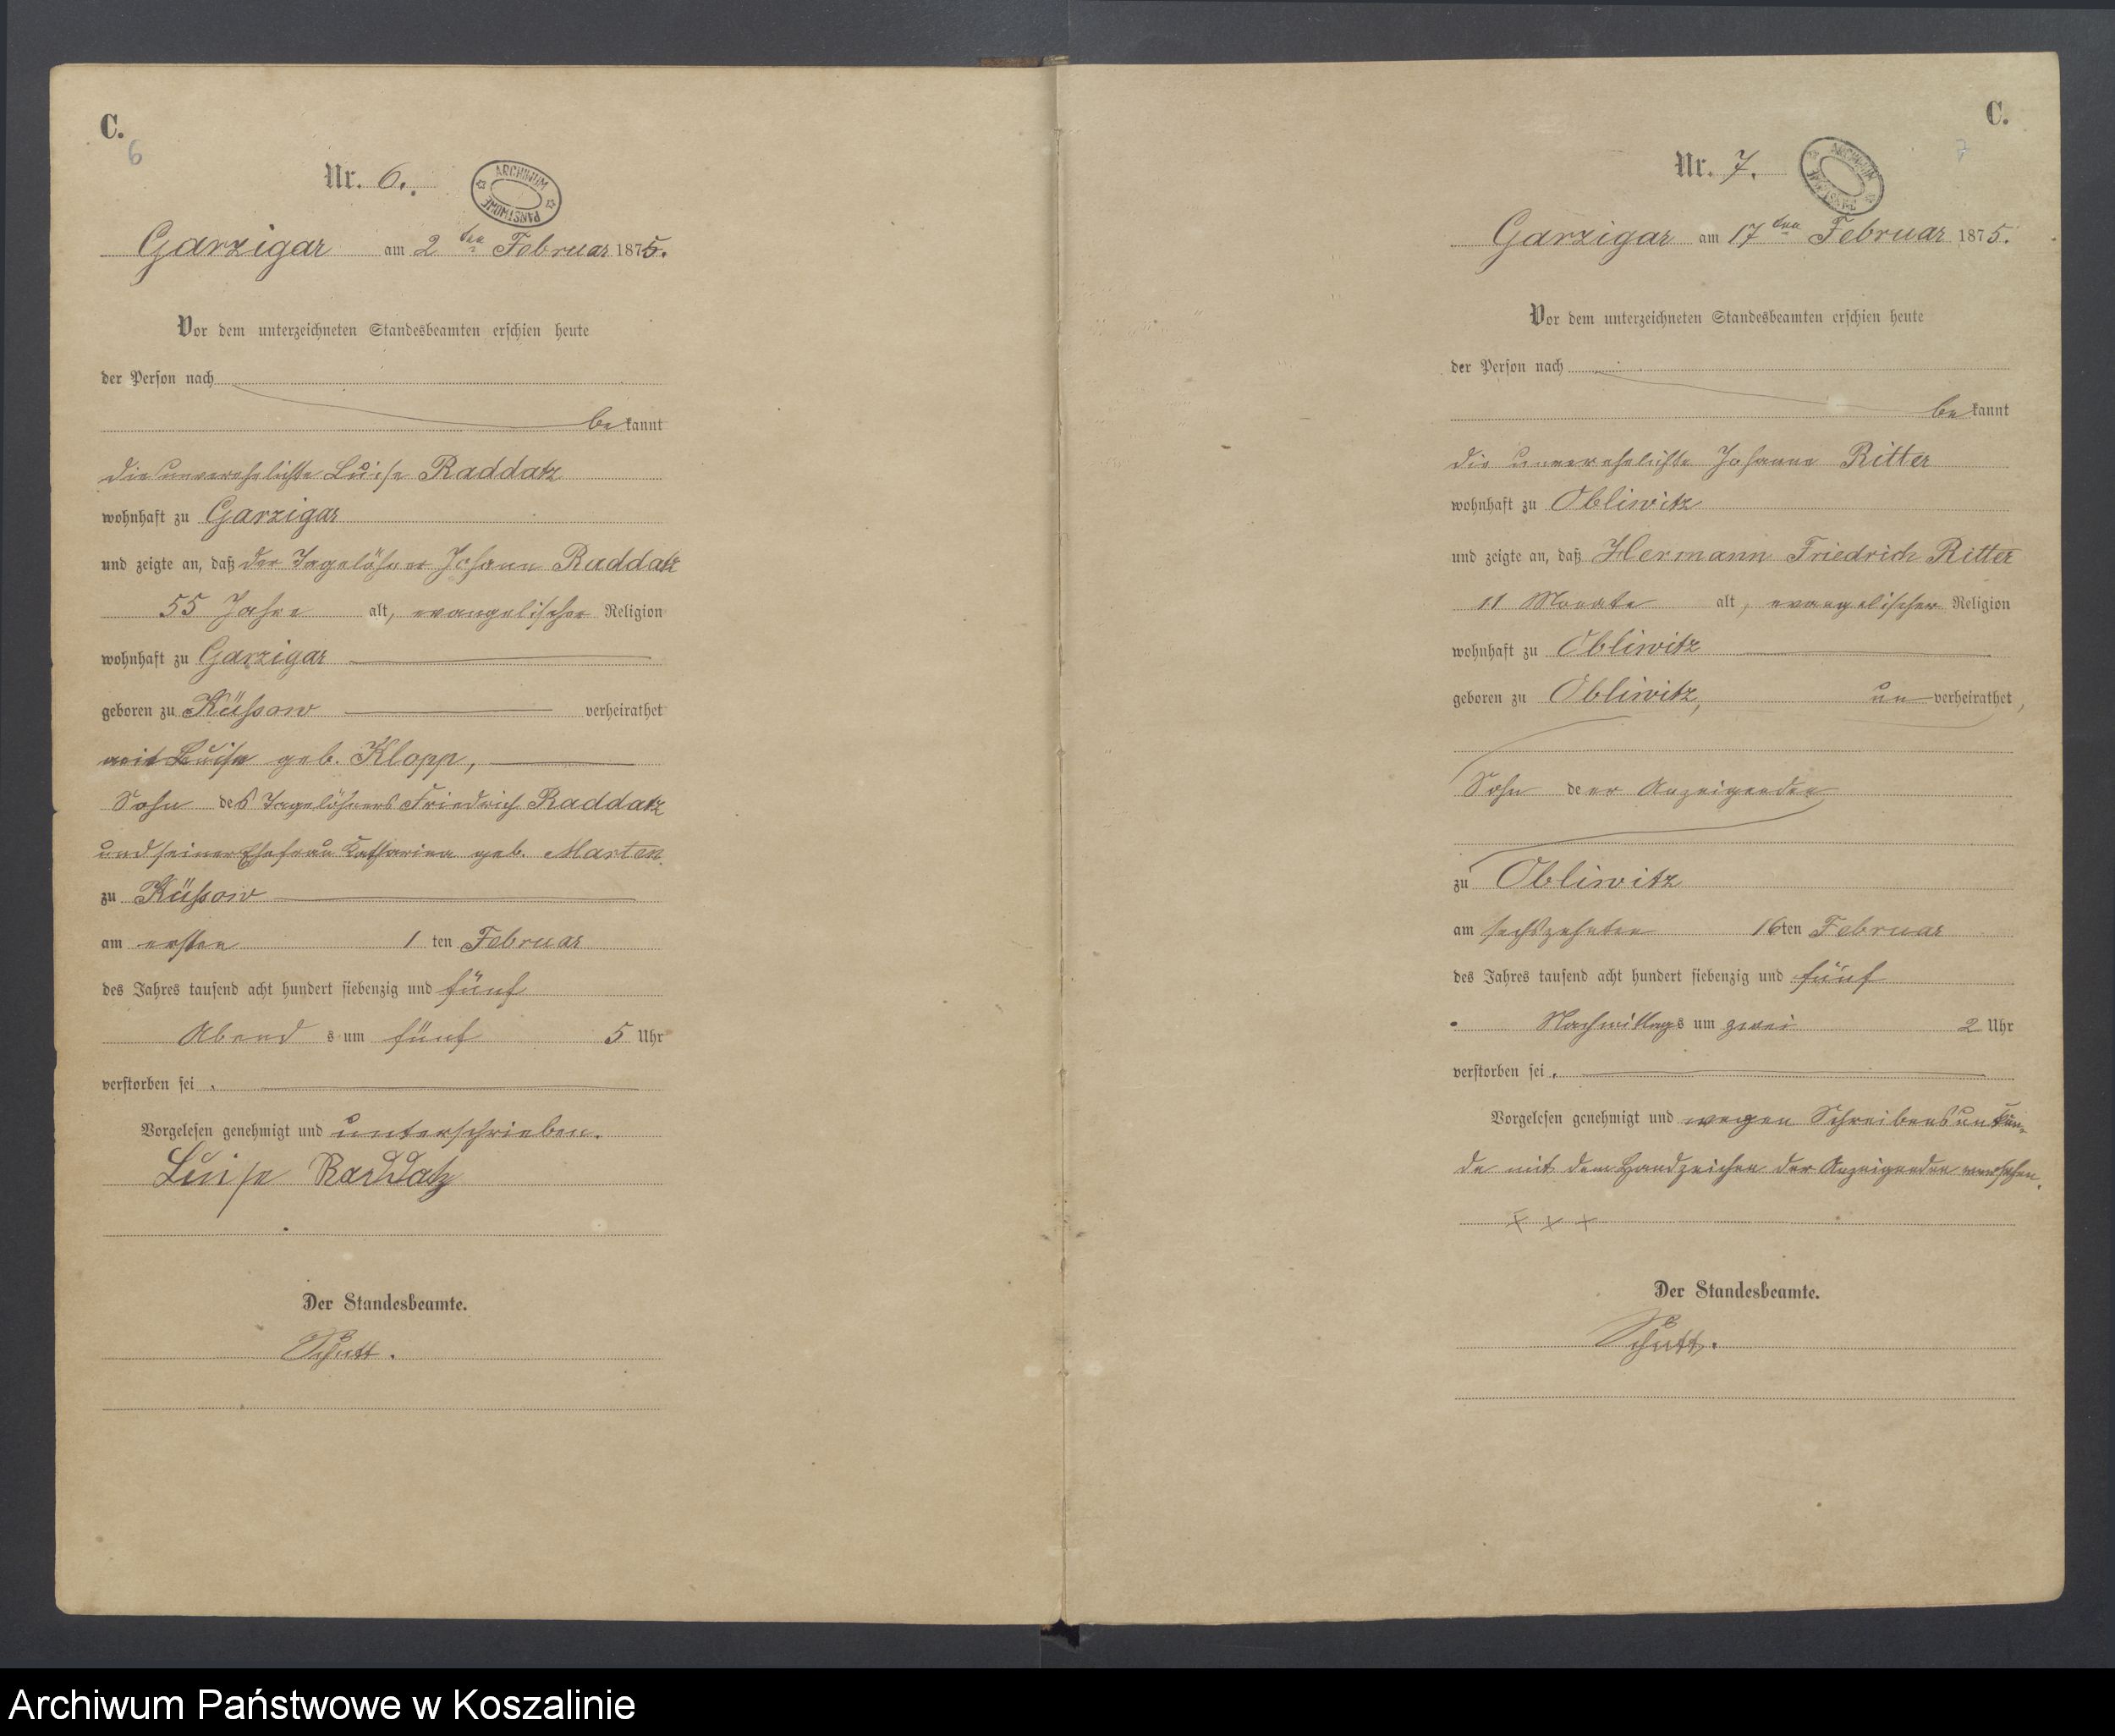 C.
6
Nr. 6.
ARCHIWUM PAŃSTWOWE
Garzigar am 2ten Februar 1875.
Vor dem unterzeichneten Standesbeamten erschien heute
der Person nach
bekannt
die unverehelichte Luise Raddatz
wohnhaft zu Garzigar
und zeigte an, daß der Tagelöhner Johann Raddatz
55 Jahre alt, evangelischer Religion
wohnhaft zu Garzigar
geboren zu Küssow verheirathet
mit Luise geb. Klopp,
Sohn des Tagelöhners Friedrich Raddatz
und seiner Ehefrau Katharina geb. Marten
zu Küssow
am ersten 1 ten Februar
des Jahres tausend acht hundert siebenzig und fünf
Abend s um fünf 5 Uhr
verstorben sei.
Vorgelesen genehmigt und unterschrieben.
Luise Raddatz
Der Standesbeamte.
Schutt.
C.
7
Nr. 7.
ARCHIWUM PAŃSTWOWE
Garzigar am 17ten Februar 1875.
Vor dem unterzeichneten Standesbeamten erschien heute
der Person nach
bekannt
die unverehelichte Johanne Ritter
wohnhaft zu Obliwitz
und zeigte an, daß Hermann Friedrich Ritter
11 Monate alt, evangelischer Religion
wohnhaft zu Obliwitz
geboren zu Obliwitz, un verheirathet,
Sohn der Anzeigenden
zu Obliwitz
am sechszehnten 16ten Februar
des Jahres tausend acht hundert siebenzig und fünf
Nachmittags um zwei 2 Uhr
verstorben sei.
Vorgelesen genehmigt und wegen Schreibensunkun-
de mit dem Handzeichen der Anzeigenden versehen.
+ + +
Der Standesbeamte.
Schutt.
Archiwum Państwowe w Koszalinie